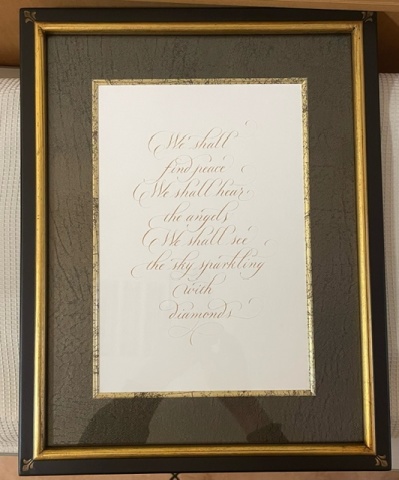 We shall
find peace
We shall hear
the angels
We shall see
the sky sparkling
with
diamonds